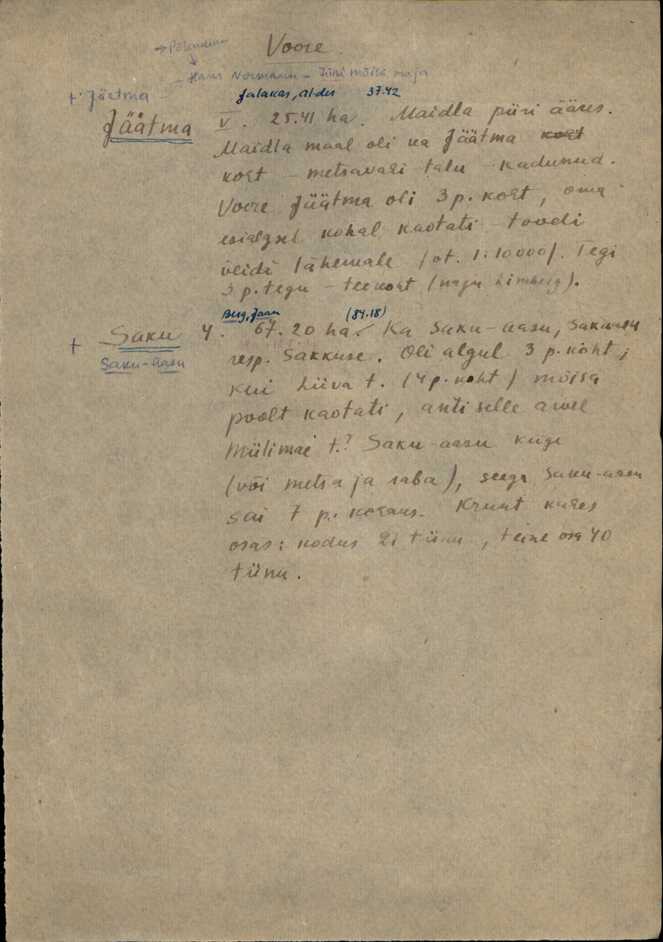 Voore.
→ Põlumann
Hans Normann – Jüri mõisa maja
+ Jäätma
Jalakas, Al-der 37.42
Jäätma V. 25.41 ha. Maidla piiri ääres.
Maidla maal oli ka Jäätma koht
koht – metsavahi talu – kadunud.
Voore Jäätma oli 3 p. koht, oma
esialgsel kohal kaotati – toodi
veidi lähemale (vt. 1:10000). Tegi
3 p. tegu – teokoht (nagu Limberg).
Berg, Jaan (84.18)
+ Saku 4. 67.20 ha. Ka Saku-aasu, Sakuasu
Saku-aasu resp. Sakkuse. Oli algul 3 p. koht;
kui Liiva t. (4 p. koht) mõisa
poolt kaotati, anti selle arvel
Mülimäe t.? Saku-aasu külge
(või metsa ja raba), seega Saku-aasu
sai 7 p. kohaks. Krunt kahes
osas: kodus 21 tiinu, teine osa 40
tiinu.